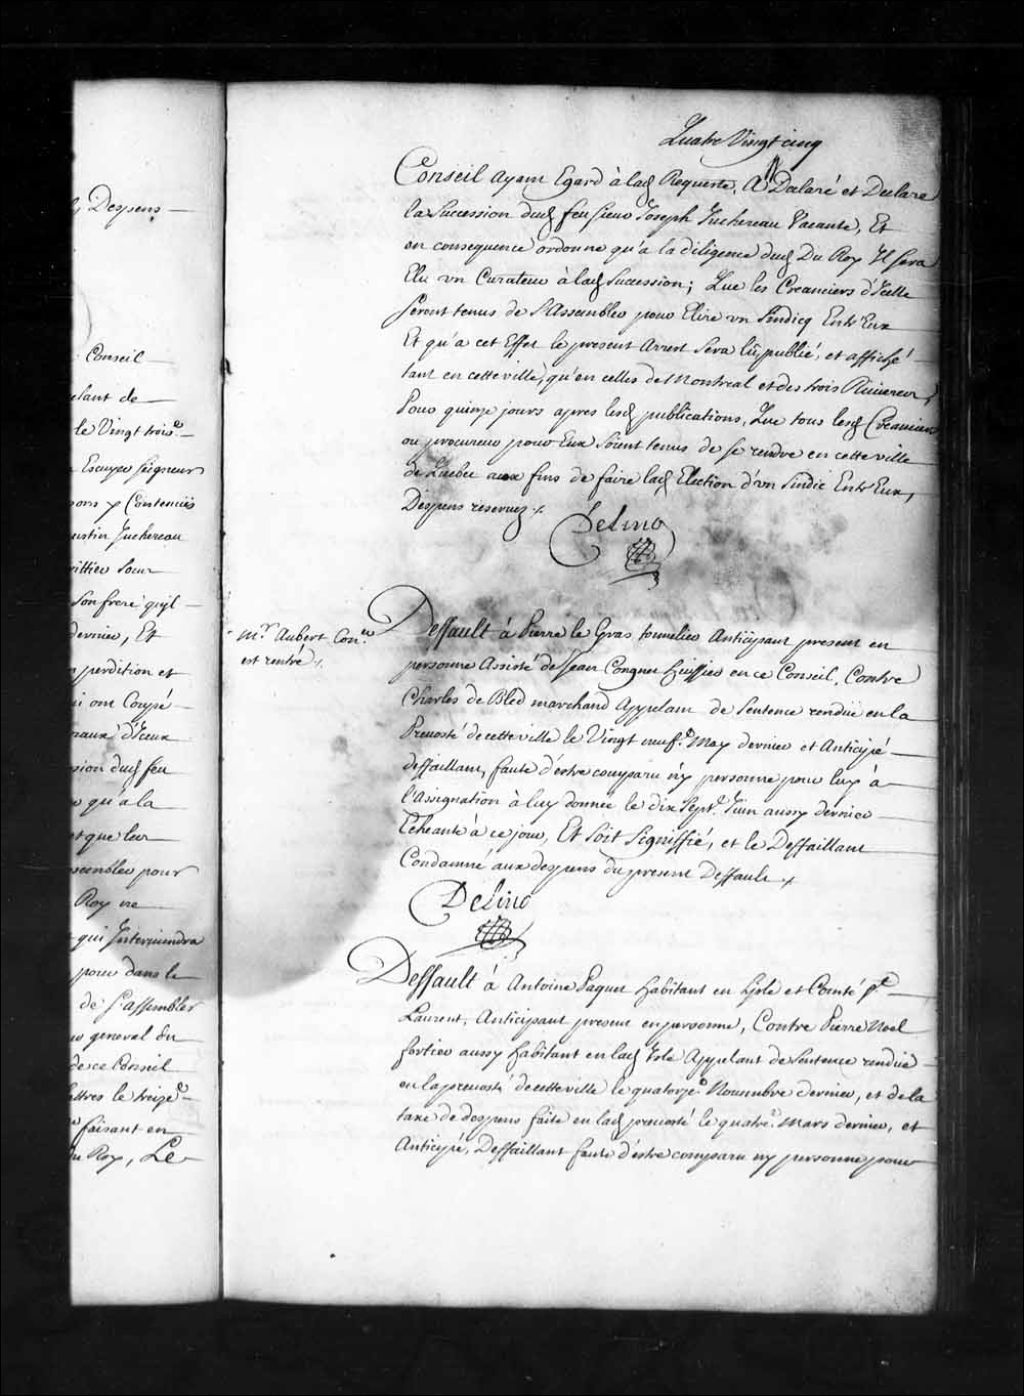 Despens
Conseil
lant de
le Vingt troise
Escuyer Seigneur
sons y Contenües
ustin Juchereau
son frere qu'il
dernier, Et
perdition et
ui ont Coupé
d'Iceux
sion dud feu
qu'a la
et que leur
sembler pour
Roy ne
qui Interviendra
pour dans le
de s'assembler
general du
de ce Conseil
lettres le treize
faisant en
du Roy, Le
Quatre Vingt cinq
Conseil ayant Egard à lad Requeste, A Declaré et Declare
la Succession dud feu sieur Joseph Juchereau Vacante, Et
en consequence ordonne qu'a la diligence dud Du Roy Il sera
Elu vn Curateur à lad Succession; Que les Creanciers d'Icelle
seront tenus de s'Assembler pour Elire vn Sindicq Entr'Eux
Et qu'a cet Effet le present Arrest sera lû, publié, et affiché
tant en cette ville, qu'en celles de Montreal et des trois Rivieres,
Pour quinze jours apres lesd publications, Que tous lesd Creanciers
ou procureur pour Eux soient tenus de se rendre en cette ville
de Quebec aux fins de faire lad Election d'vn Sindic Entr'Eux,
Despens reservez
Delino
Mr. Aubert Coner
est rentré
Deffault à Pierre le Gras tonnelier Anticipant present en
personne Assisté de Jean Congnet huissier en ce Conseil, Contre
Charles de Bled marchand Appelant de Sentence rendüe en la
Prevosté de cette ville le Vingt neufe May dernier et Anticipé
deffaillant, faute d'estre comparu n'y personne pour luy à
l'Assignation à luy donnée le dix Sept. Juin aussy dernier
Echeante à ce jour, Et soit Signiffié, et le Deffaillant
Condamné aux despens du present Deffault
Delino
Deffault à Antoine Paquet habitant en l'isle et Comté St
Laurent, Anticipant present en personne, Contre Pierre Noel
fortier aussy habitant en lad Isle Appelant de Sentence rendüe
en la prevosté de cette ville le quatorze Novembre dernier, et de la
taxe de despens faite en lad prevosté le quatre. Mars dernier, et
Anticipé, Deffaillant faute d'estre comparu n'y personne pour